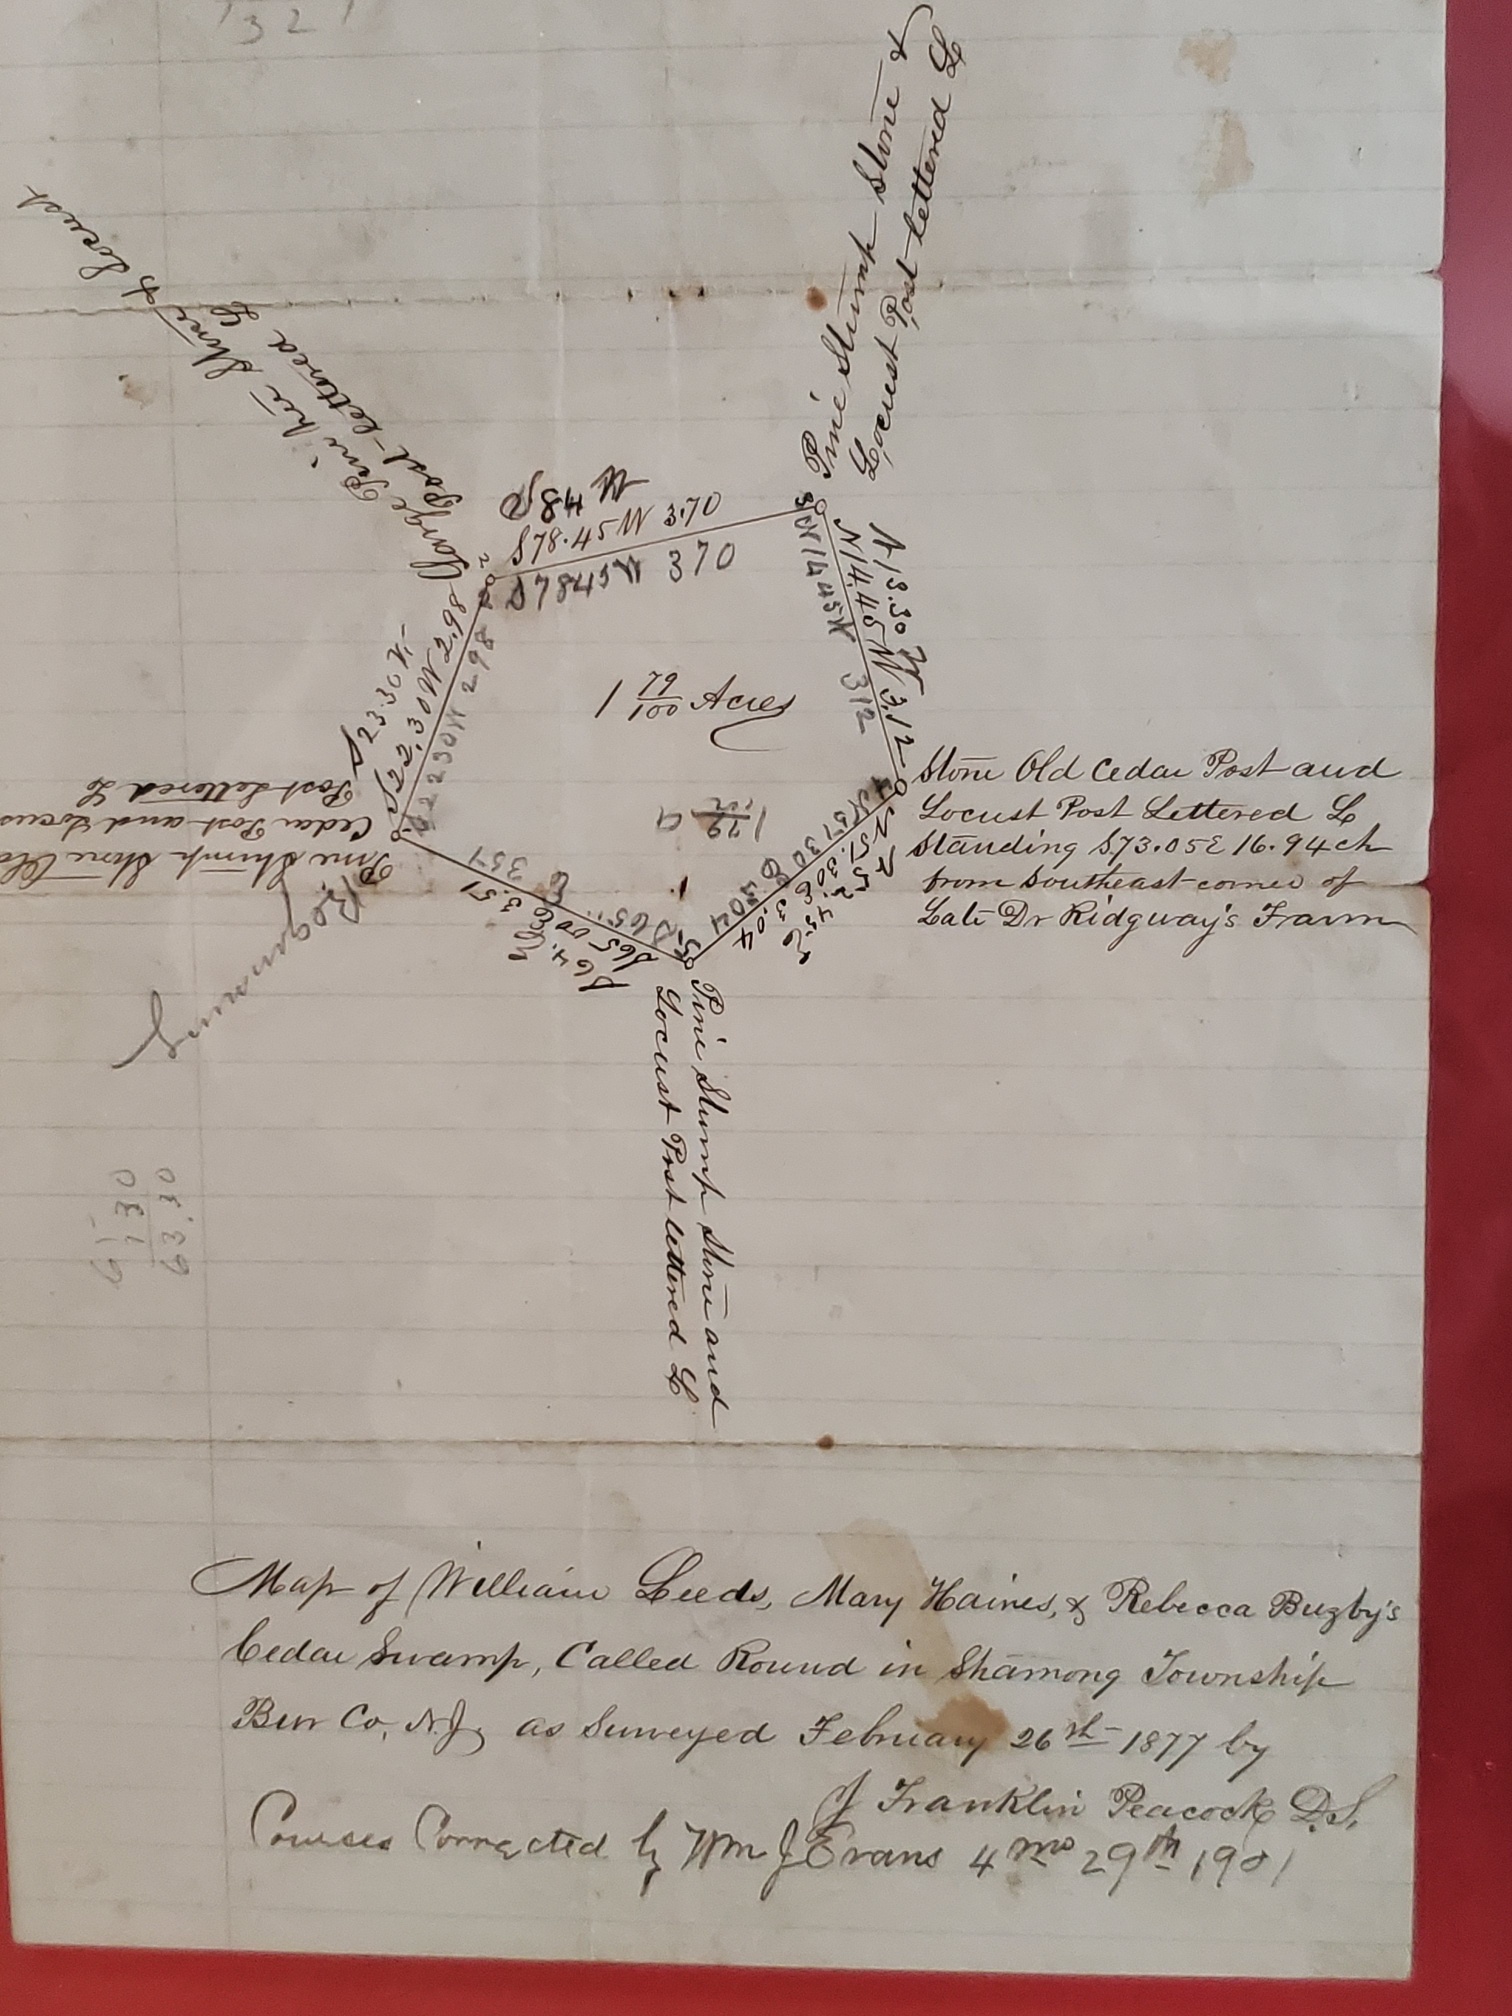 132
Large Pine tree Stone & Locust
Post lettered L
Pine Stump Stone &
Locust Post lettered L
S 78.45 W 3.70
S 78 45 W 370
N 14.45 W 3.12
N 13.30 W
N 14 45 W 312
S 22.30 W 2.98
S 23.30 W
S 22 30 W 298
1 79/100 Acres
1 79/100 A
Pine Stump Stone Old
Cedar Post and Locust
Post Lettered L
Stone Old Cedar Post and
Locust Post Lettered L
Standing S 73.05 E 16.94 ch
from Southeast corner of
Late Dr Ridgway's Farm
S 65 00 E 3.51
S 64. E
S 65 E 351
N 51.30 E 3.04
N 52.45 E
N 51 30 E 304
Pine Stump Stone and
Locust Post lettered L
63.30
1 30
Map of William Leeds, Mary Haines, & Rebecca Buzby's
Cedar Swamp, Called Round in Shamong Township
Bur Co, N.J, as Surveyed February 26th 1877 by
J Franklin Peacock D.S.
Courses Corrected by Wm J Evans 4 mo 29th 1901